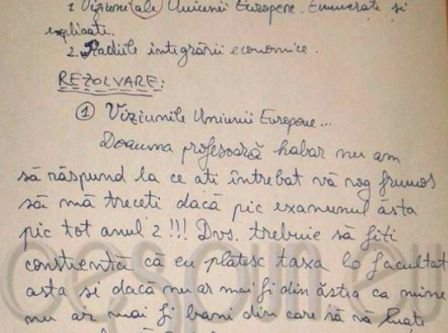 1. Viziunile (ale) Uniunii Europene. Enumerati si
explicati.
2. Stadiile integrării economice.
REZOLVARE:
① Viziunile Uniunii Europene...
Doamna profesoară habar nu am
să răspund la ce ati întrebat vă rog frumos
să mă treceti dacă pic examunul ăsta
pic tot anul 2!!! Dvs. trebuie să fiti
constientă că eu plătesc taxa la facultat
asta si dacă nu ar mai fi din ăstia ca mine
nu ar mai fi bani din care să vă luati